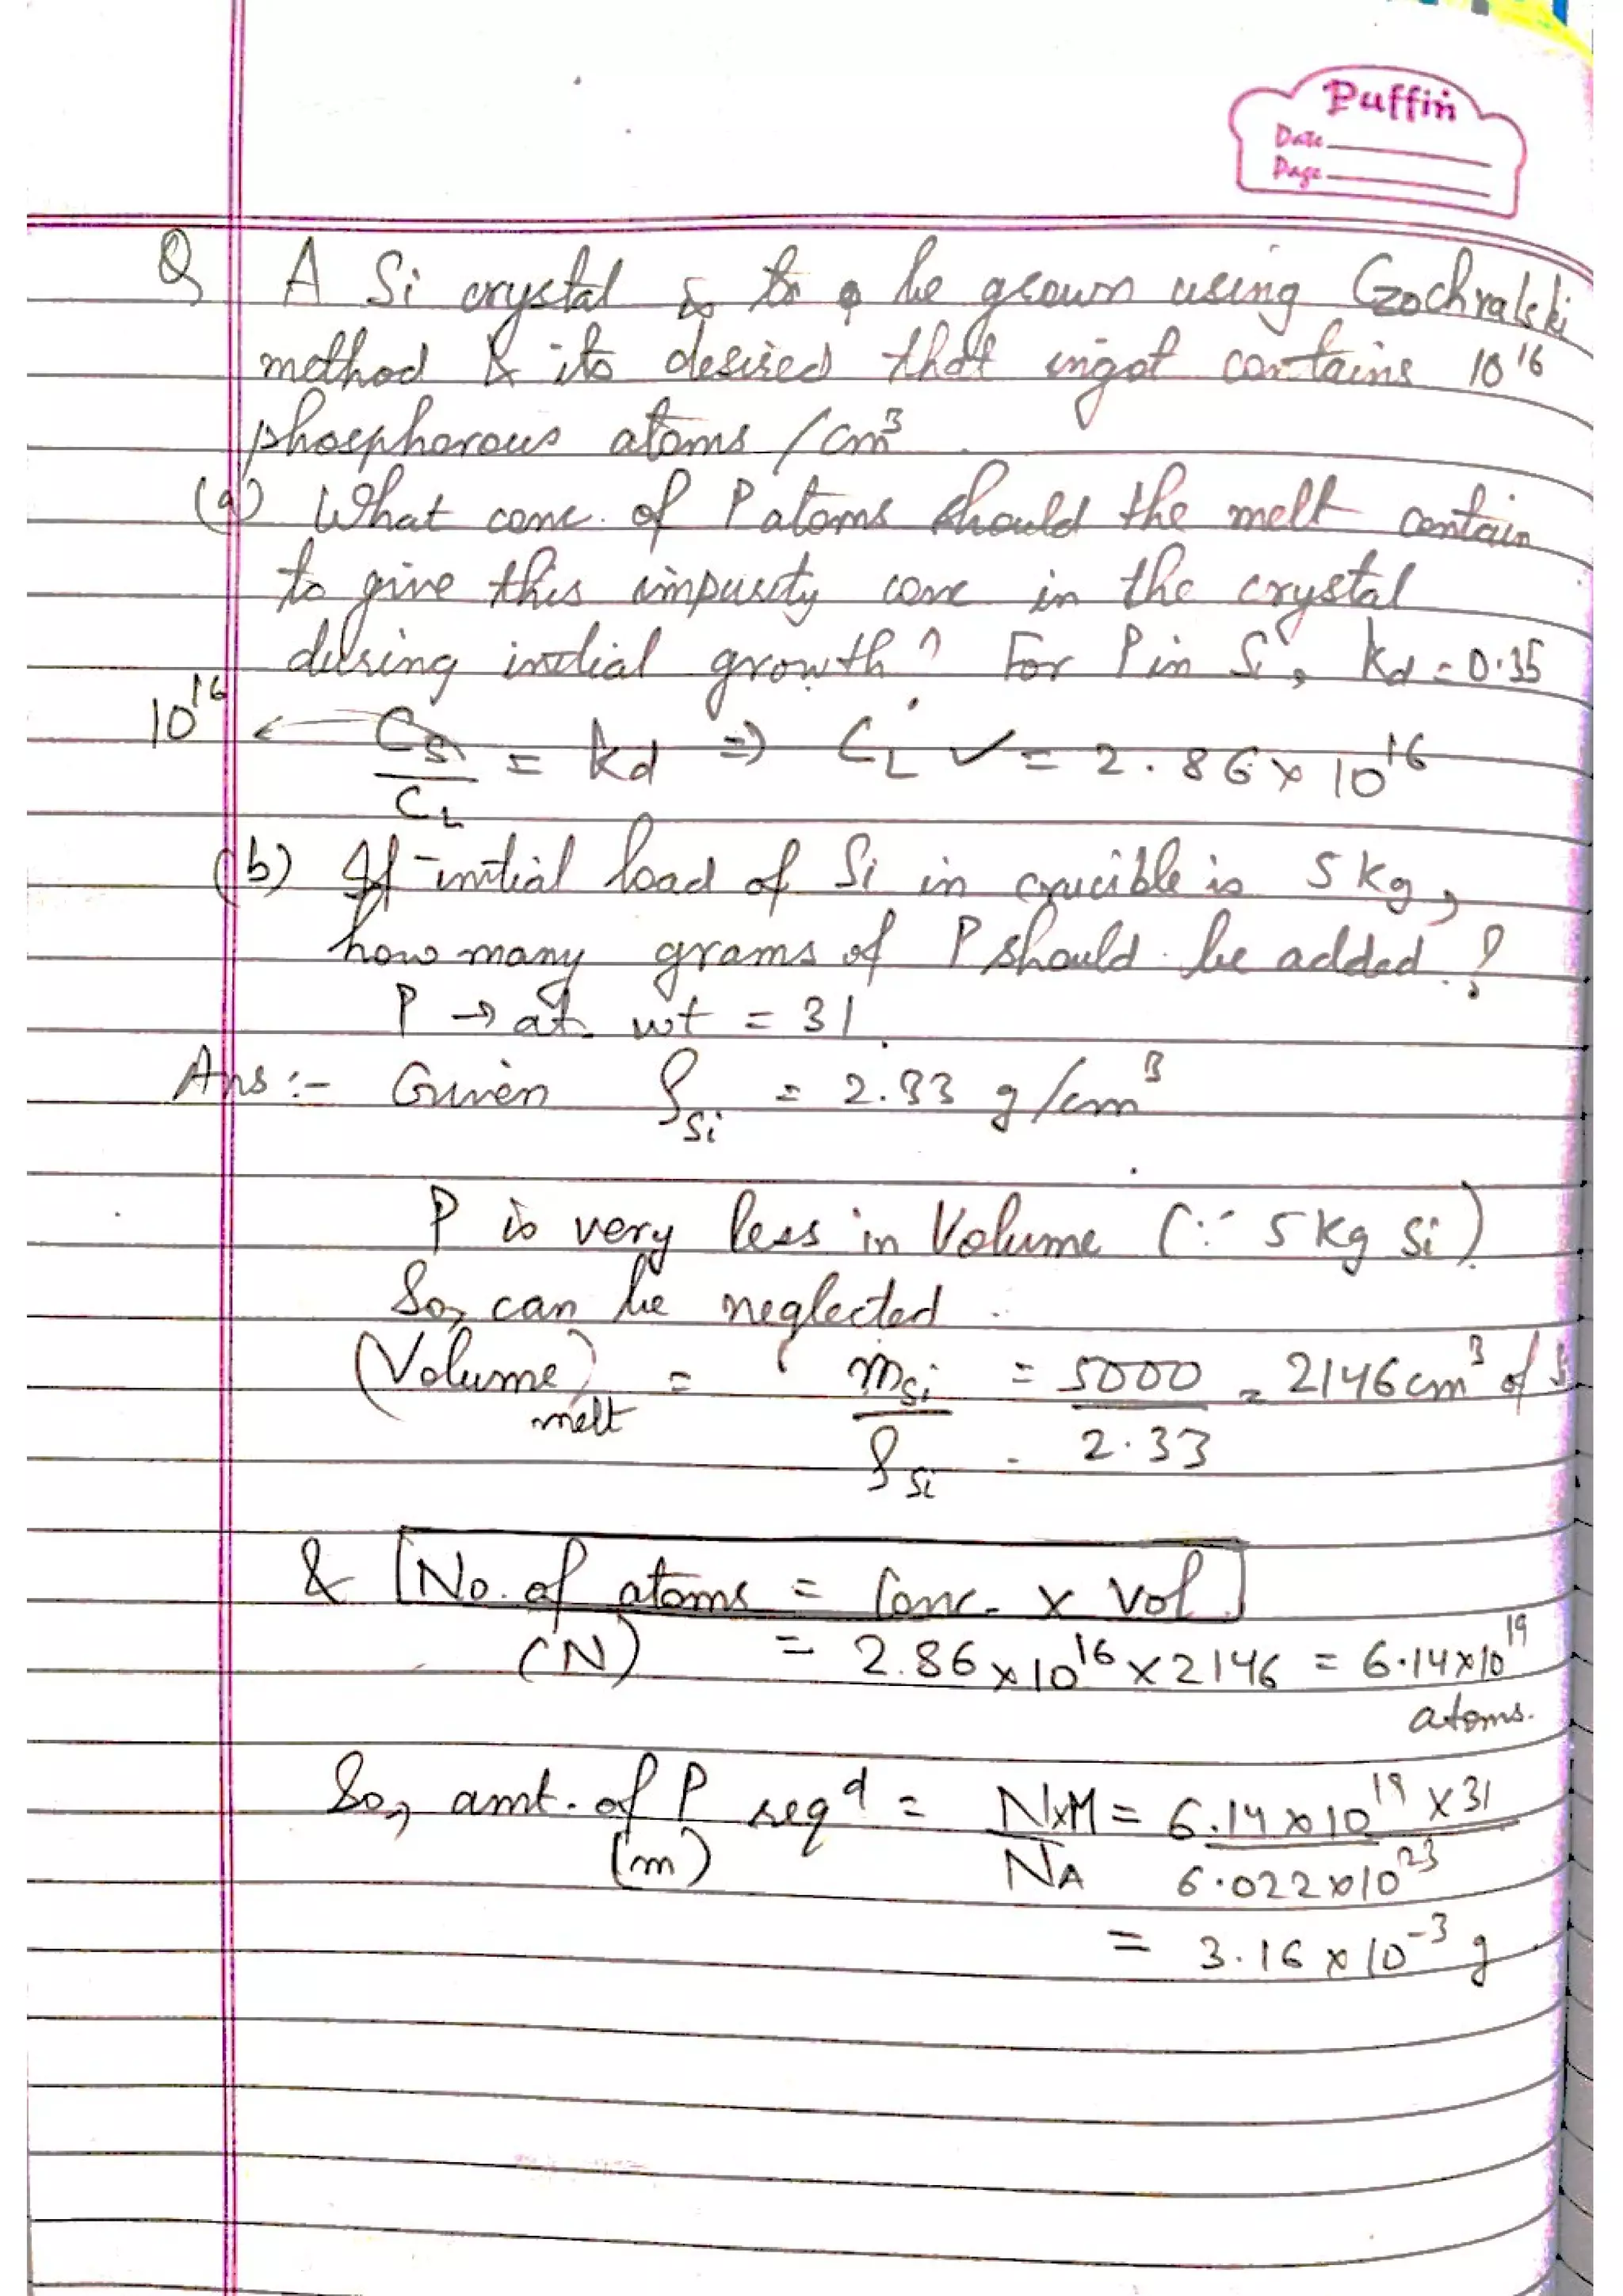 Puffin
Date
Page
Q A Si crystal is to be grown using Czochralski
method & its desired that ingot contains 10¹⁶
phosphorous atoms /cm³.
(a) What conc. of P atoms should the melt contain
to give this impurity conc in the crystal
during initial growth? For P in Si, kd = 0.35
10¹⁶ ← Cs/CL = kd ⇒ CL ✓ = 2.86 × 10¹⁶
(b) If initial load of Si in crucible is 5 kg,
how many grams of P should be added?
P → at. wt = 31.
Ans :- Given ρSi = 2.33 g/cm³
P is very less in Volume (∵ 5 kg Si)
So, can be neglected.
(Volume)melt = mSi/ρSi = 5000/2.33 = 2146 cm³ of
& No. of atoms = Conc. × Vol
(N) = 2.86 × 10¹⁶ × 2146 = 6.14 × 10¹⁹
atoms.
So, amt. of P reqd = N×M/NA = 6.14 × 10¹⁹ × 31/6.022 × 10²³
(m)
= 3.16 × 10⁻³ g